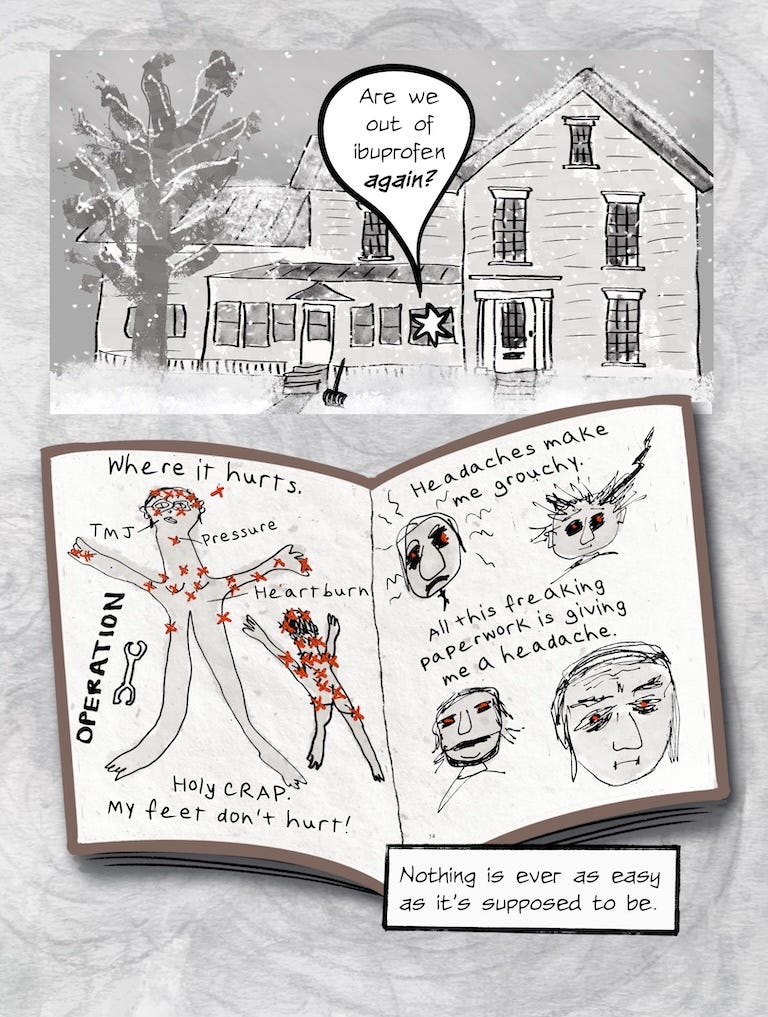 Are we
out of
ibuprofen
again?
Where it hurts.
TMJ
Pressure
Heartburn
OPERATION
Holy CRAP.
My feet don't hurt!
Headaches make
me grouchy.
All this freaking
paperwork is giving
me a headache.
Nothing is ever as easy
as it's supposed to be.